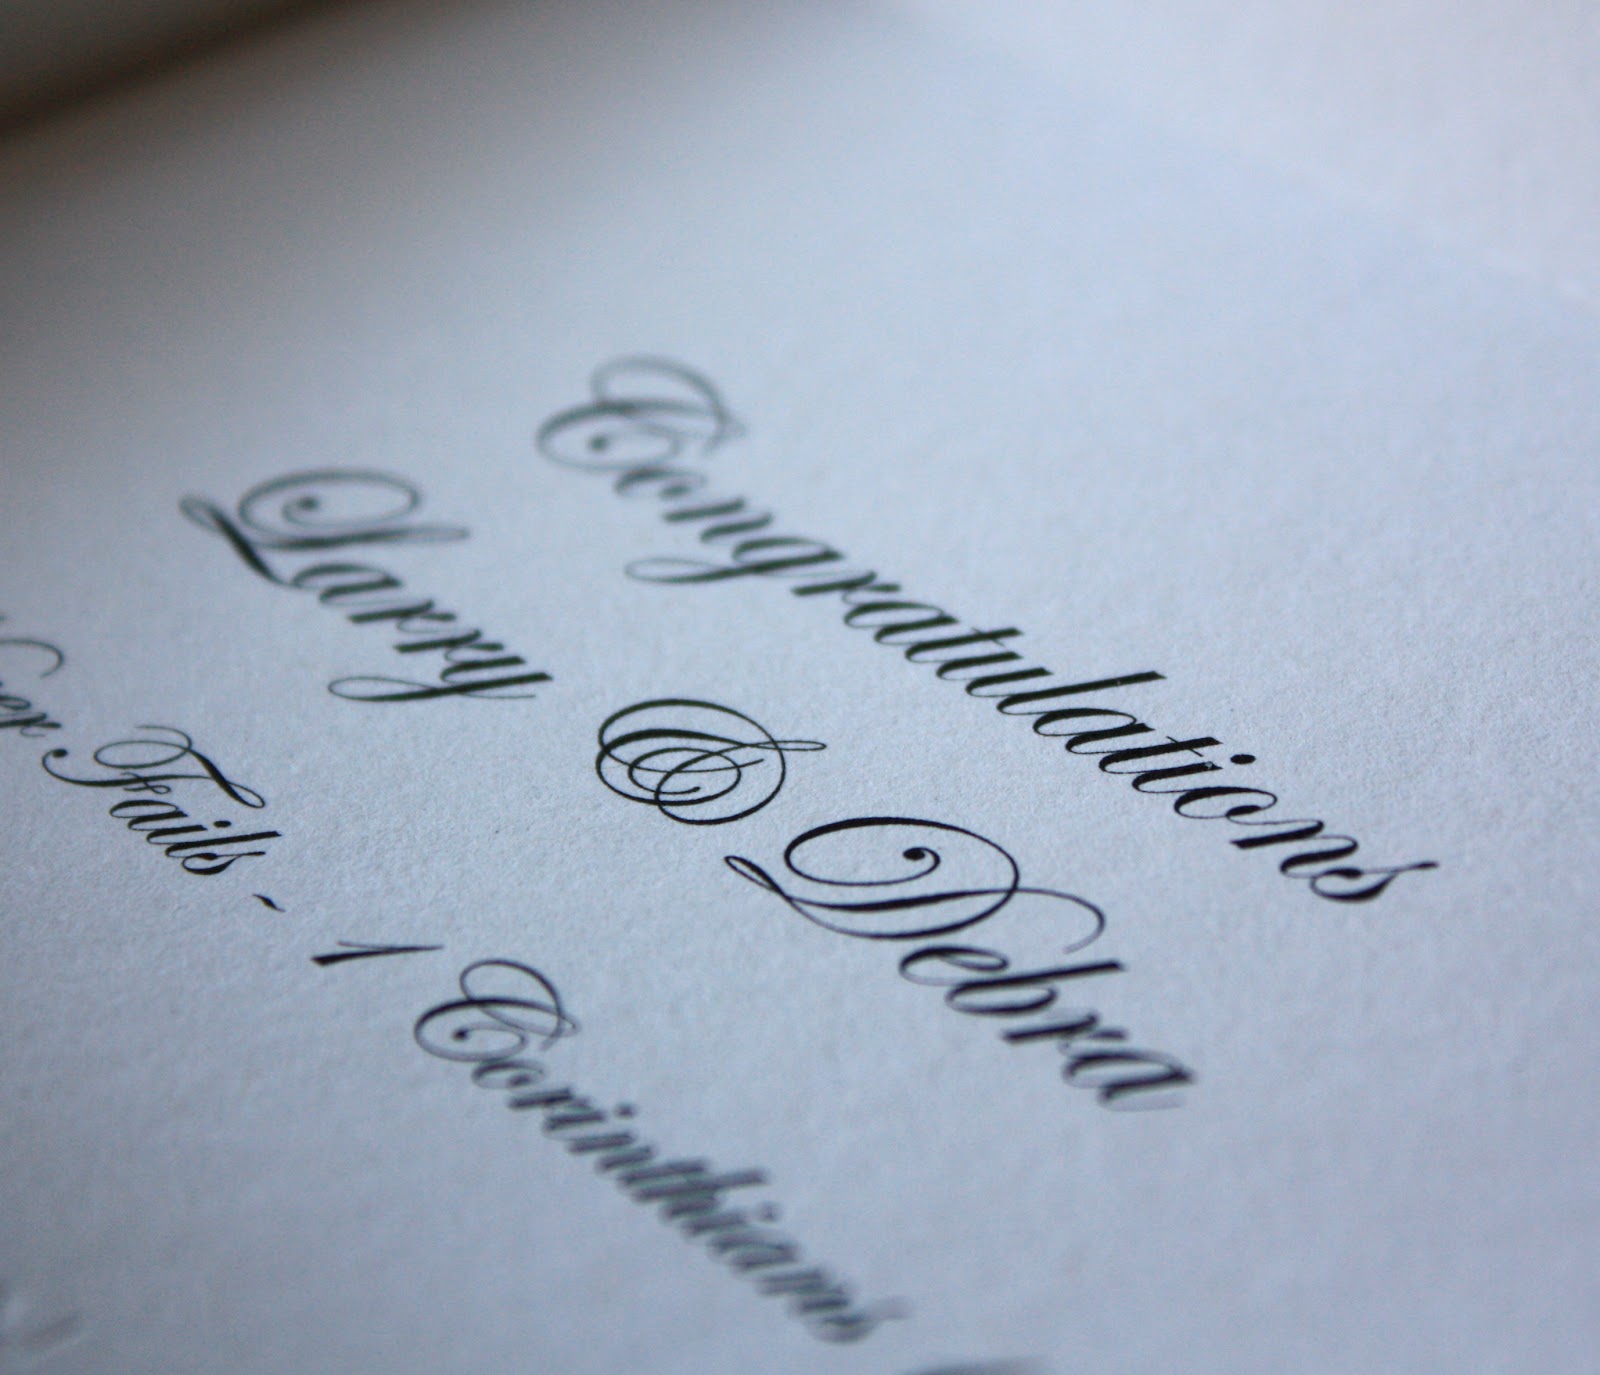 Congratulations
Larry & Debra
Fails - 1 Corinthians